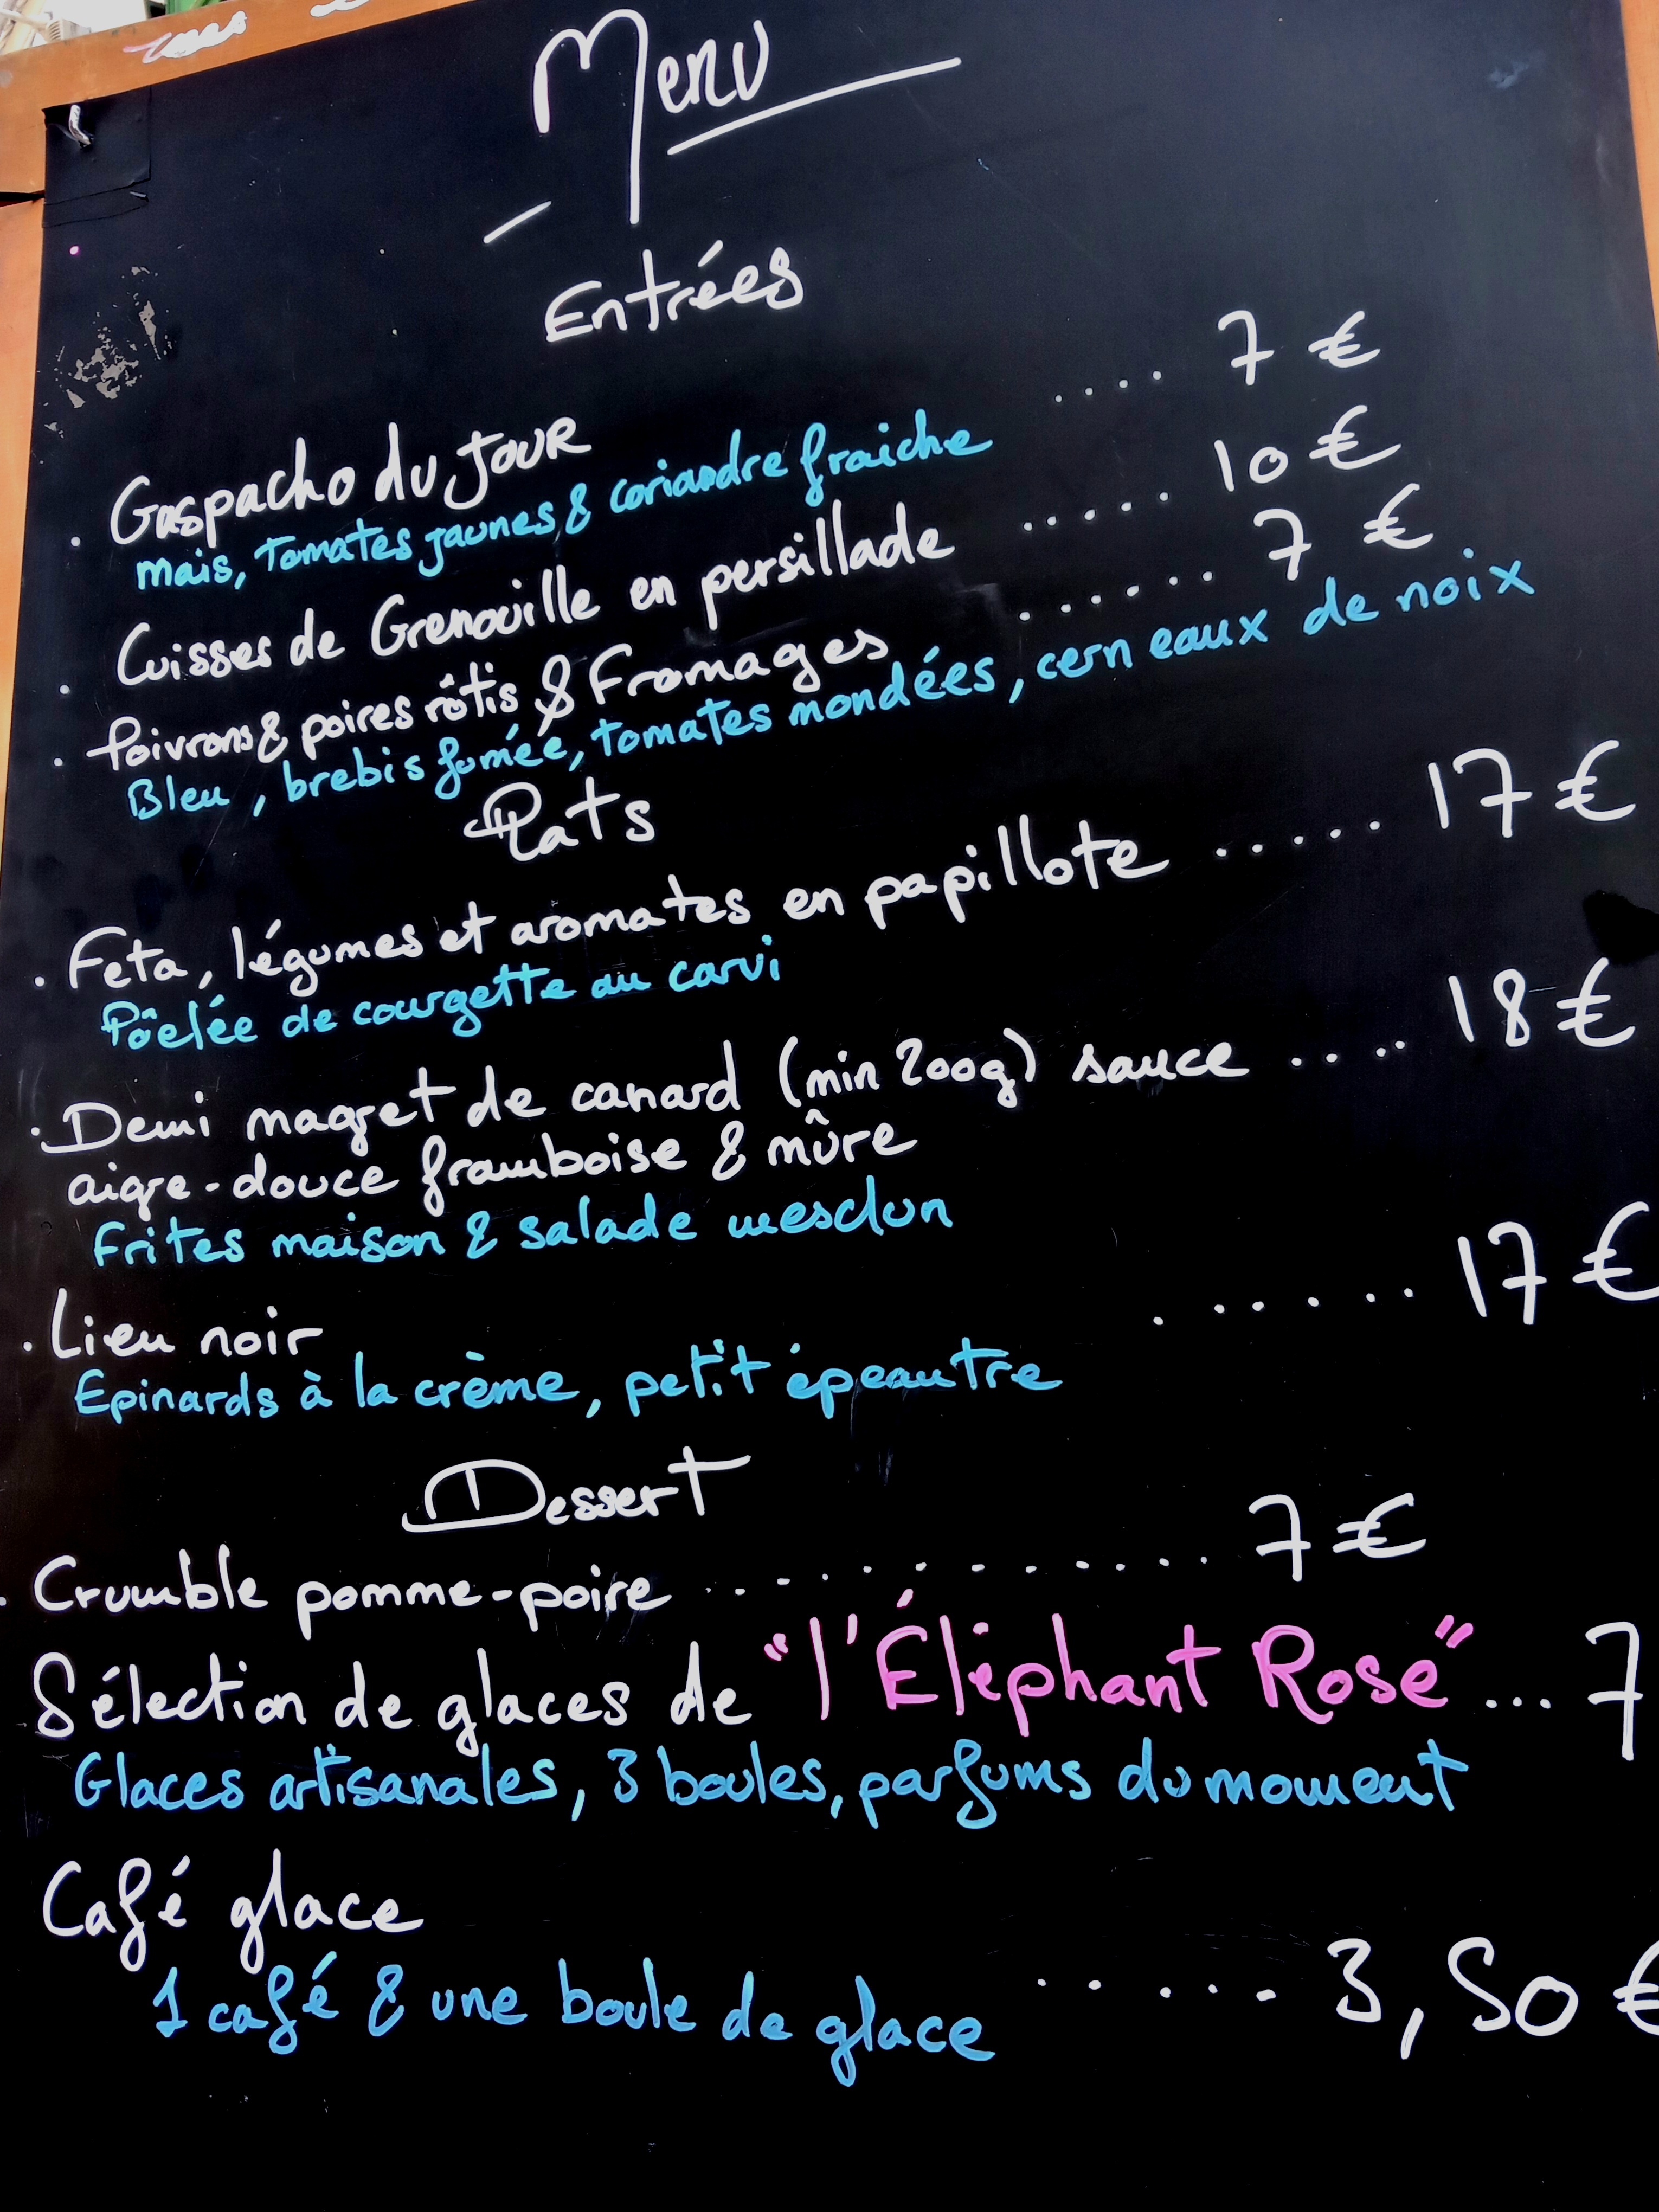 Menu
Entrées
. Gaspacho du Jour .... 7 €
mais, Tomates jaunes & coriandre fraiche
. Cuisses de Grenouille en persillade ..... 10 €
. Poivrons & poires rôtis & Fromages ...... 7 €
Bleu, brebis fumée, tomates mondées, cerneaux de noix
Plats
. Feta, légumes et aromates en papillote ..... 17 €
Pôelée de courgette au carvi
. Demi magret de canard (min 200g) sauce .... 18 €
aigre-douce framboise & mûre
Frites maison & salade mesclun
. Lieu noir ...... 17 €
Epinards à la crème, petit épeautre
Dessert
. Crumble pomme-poire ............ 7 €
Sélection de glaces de "l'Éléphant Rose" ... 7
Glaces artisanales, 3 boules, parfums du moment
Café glace
1 café & une boule de glace ...... 3,50 €